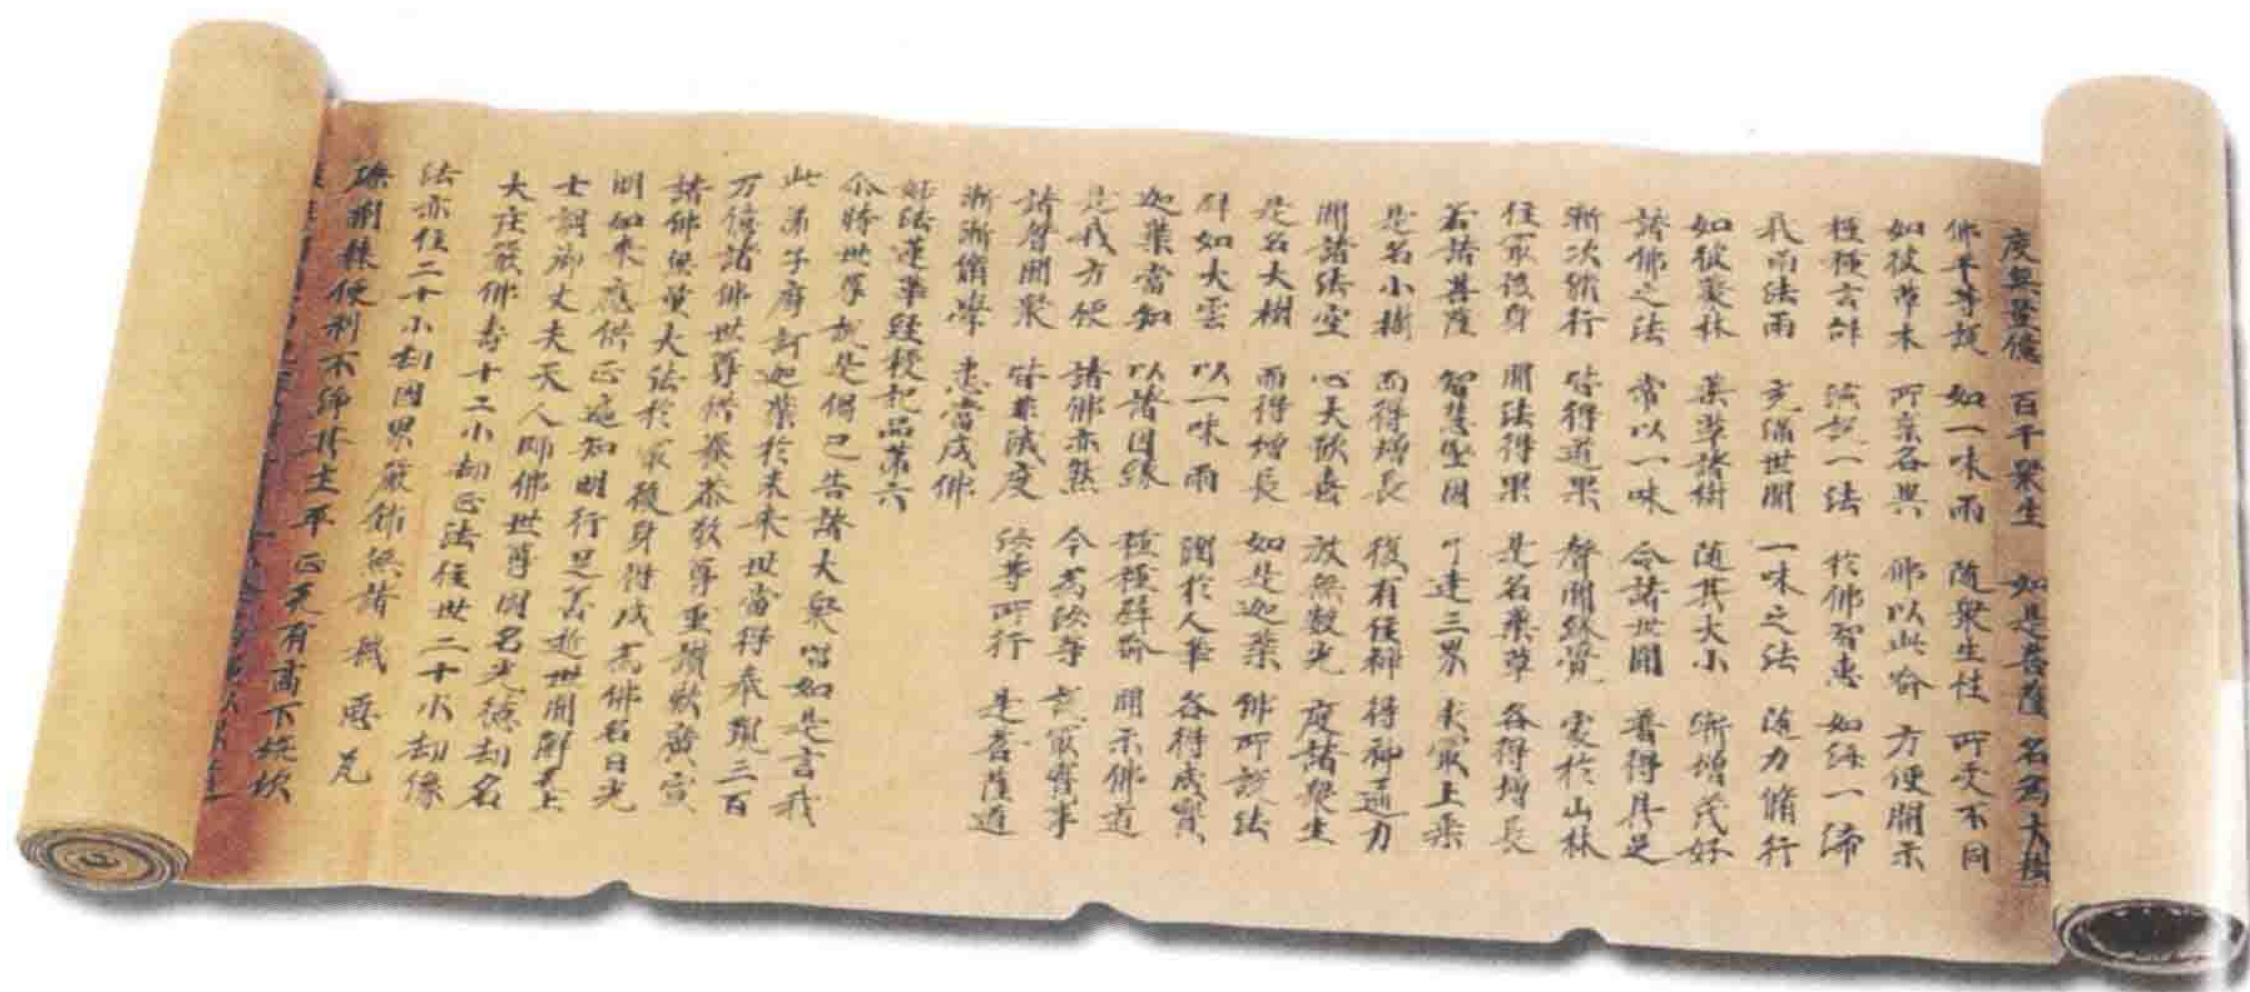 度無量億 百千眾生 如是菩薩 名為大樹
佛平等說 如一味雨 随眾生性 所受不同
如彼草木 所稟各異 佛以此喻 方便開示
種種言辭 演說一法 於佛智惠 如海一渧
我雨法雨 充滿世間 一味之法 随力脩行
如彼藂林 藥草諸樹 随其大小 漸增茂好
諸佛之法 常以一味 令諸世間 普得具足
漸次脩行 皆得道果 聲聞緣覺 處於山林
住最後身 聞法得果 是名藥草 各得增長
若諸菩薩 智慧堅固 了達三界 求最上乘
是名小樹 而得增長 復有住禪 得神通力
聞諸法空 心大歡喜 放無數光 度諸眾生
是名大樹 而得增長 如是迦葉 佛所說法
辟如大雲 以一味雨 潤於人華 各得成實
迦葉當知 以諸因緣 種種辟喻 開示佛道
是我方便 諸佛亦然 今為汝等 說最實事
諸聲聞眾 皆非滅度 汝等所行 是菩薩道
漸漸脩學 悉當成佛
妙法蓮華經授記品第六
尒時世尊說是偈已告諸大眾唱如是言我
此弟子摩訶迦葉於未來世當得奉覲三百
万億諸佛世尊供養恭敬尊重讚歎廣宣
諸佛無量大法於最後身得成為佛名曰光
明如來應供正遍知明行足善逝世間解无上
士調御丈夫天人師佛世尊國名光德劫名
大庄嚴佛壽十二小劫正法住世二十小劫像
法亦住二十小劫國界嚴飾無諸穢惡瓦
礫荊棘便利不淨其土平正无有高下坑坎